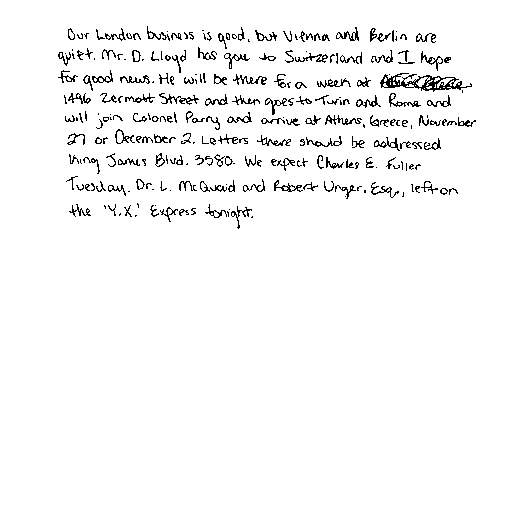 Our London business is good, but Vienna and Berlin are
quiet. Mr. D. Lloyd has gone to Switzerland and I hope
for good news. He will be there for a week at
1496 Zermott Street and then goes to Turin and Rome and
will join Colonel Parry and arrive at Athens, Greece, November
27 or December 2. Letters there should be addressed
King James Blvd. 3580. We expect Charles E. Fuller
Tuesday. Dr. L. McQuaid and Robert Unger, Esq., left on
the 'Y.X.' Express tonight.